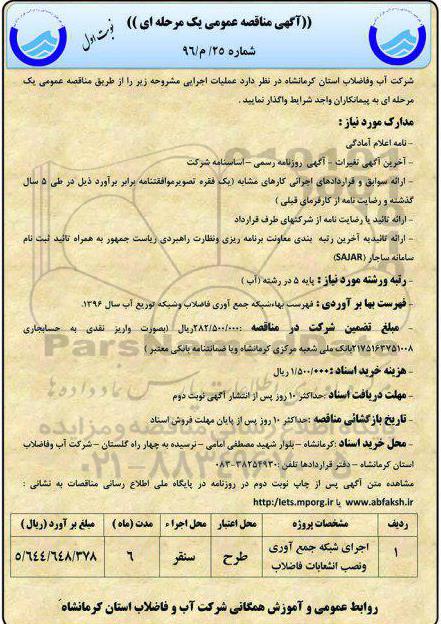 ((آگهی مناقصه عمومی یک مرحله ای ))
نوبت اول
شماره ۲۵/ م/ ۹۶
شرکت آب وفاضلاب استان کرمانشاه در نظر دارد عملیات اجرایی مشروحه زیر را از طریق مناقصه عمومی یک
مرحله ای به پیمانکاران واجد شرایط واگذار نمایید .
مدارک مورد نیاز :
- نامه اعلام آمادگی
- آخرین آگهی تغییرات - آگهی روزنامه رسمی – اساسنامه شرکت
- ارائه سوابق و قراردادهای اجرائی کارهای مشابه (یک فقره تصویرموافقتنامه برابر برآورد ذیل در طی ۵ سال
گذشته و رضایت نامه از کارفرمای قبلی )
- ارائه تائید یا رضایت نامه از شرکتهای طرف قرارداد
- ارائه تائیدیه آخرین رتبه بندی معاونت برنامه ریزی ونظارت راهبردی ریاست جمهور به همراه تائید ثبت نام
سامانه ساجار (SAJAR)
- رتبه ورشته مورد نیاز : پایه ۵ در رشته (آب )
- فهرست بها بر آوردی : فهرست بهاءشبکه جمع آوری فاضلاب وشبکه توزیع آب سال ۱۳۹۶.
- مبلغ تضمین شرکت در مناقصه :۲۸۲/۵۰۰/۰۰۰ریال (بصورت واریز نقدی به حسابجاری
۲۱۷۵۱۶۳۷۵۱۰۰۸بانک ملی شعبه مرکزی کرمانشاه ویا ضمانتنامه بانکی معتبر )
- هزینه خرید اسناد :۱/۵۰۰/۰۰۰ ریال
- مهلت دریافت اسناد :حداکثر ۱۰ روز پس از انتشار آگهی نوبت دوم
- تاریخ بازگشائی مناقصه :حداکثر ۱۰ روز پس از پایان مهلت فروش اسناد
- محل خرید اسناد :کرمانشاه – بلوار شهید مصطفی امامی – نرسیده به چهار راه گلستان – شرکت آب وفاضلاب
استان کرمانشاه – دفتر قراردادها تلفن :۳۸۲۵۴۹۳۰-۰۸۳
مشاهده متن آگهی پس از چاپ نوبت دوم در روزنامه در پایگاه ملی اطلاع رسانی مناقصات به نشانی :
http://iets.mporg.ir یا www.abfaksh.ir
ردیف مشخصات پروژه محل اعتبار محل اجراء مدت (ماه ) مبلغ بر آورد (ریال )
۱ اجرای شبکه جمع آوری ونصب انشعابات فاضلاب طرح سنقر ۶ ۵/۶۴۴/۶۴۸/۳۷۸
روابط عمومی و آموزش همگانی شرکت آب و فاضلاب استان کرمانشاه